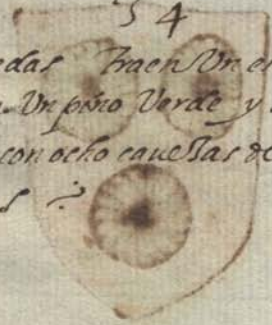 54
edas Traen Vn es
Vn pino Verde y
con ocho caueSas de
s